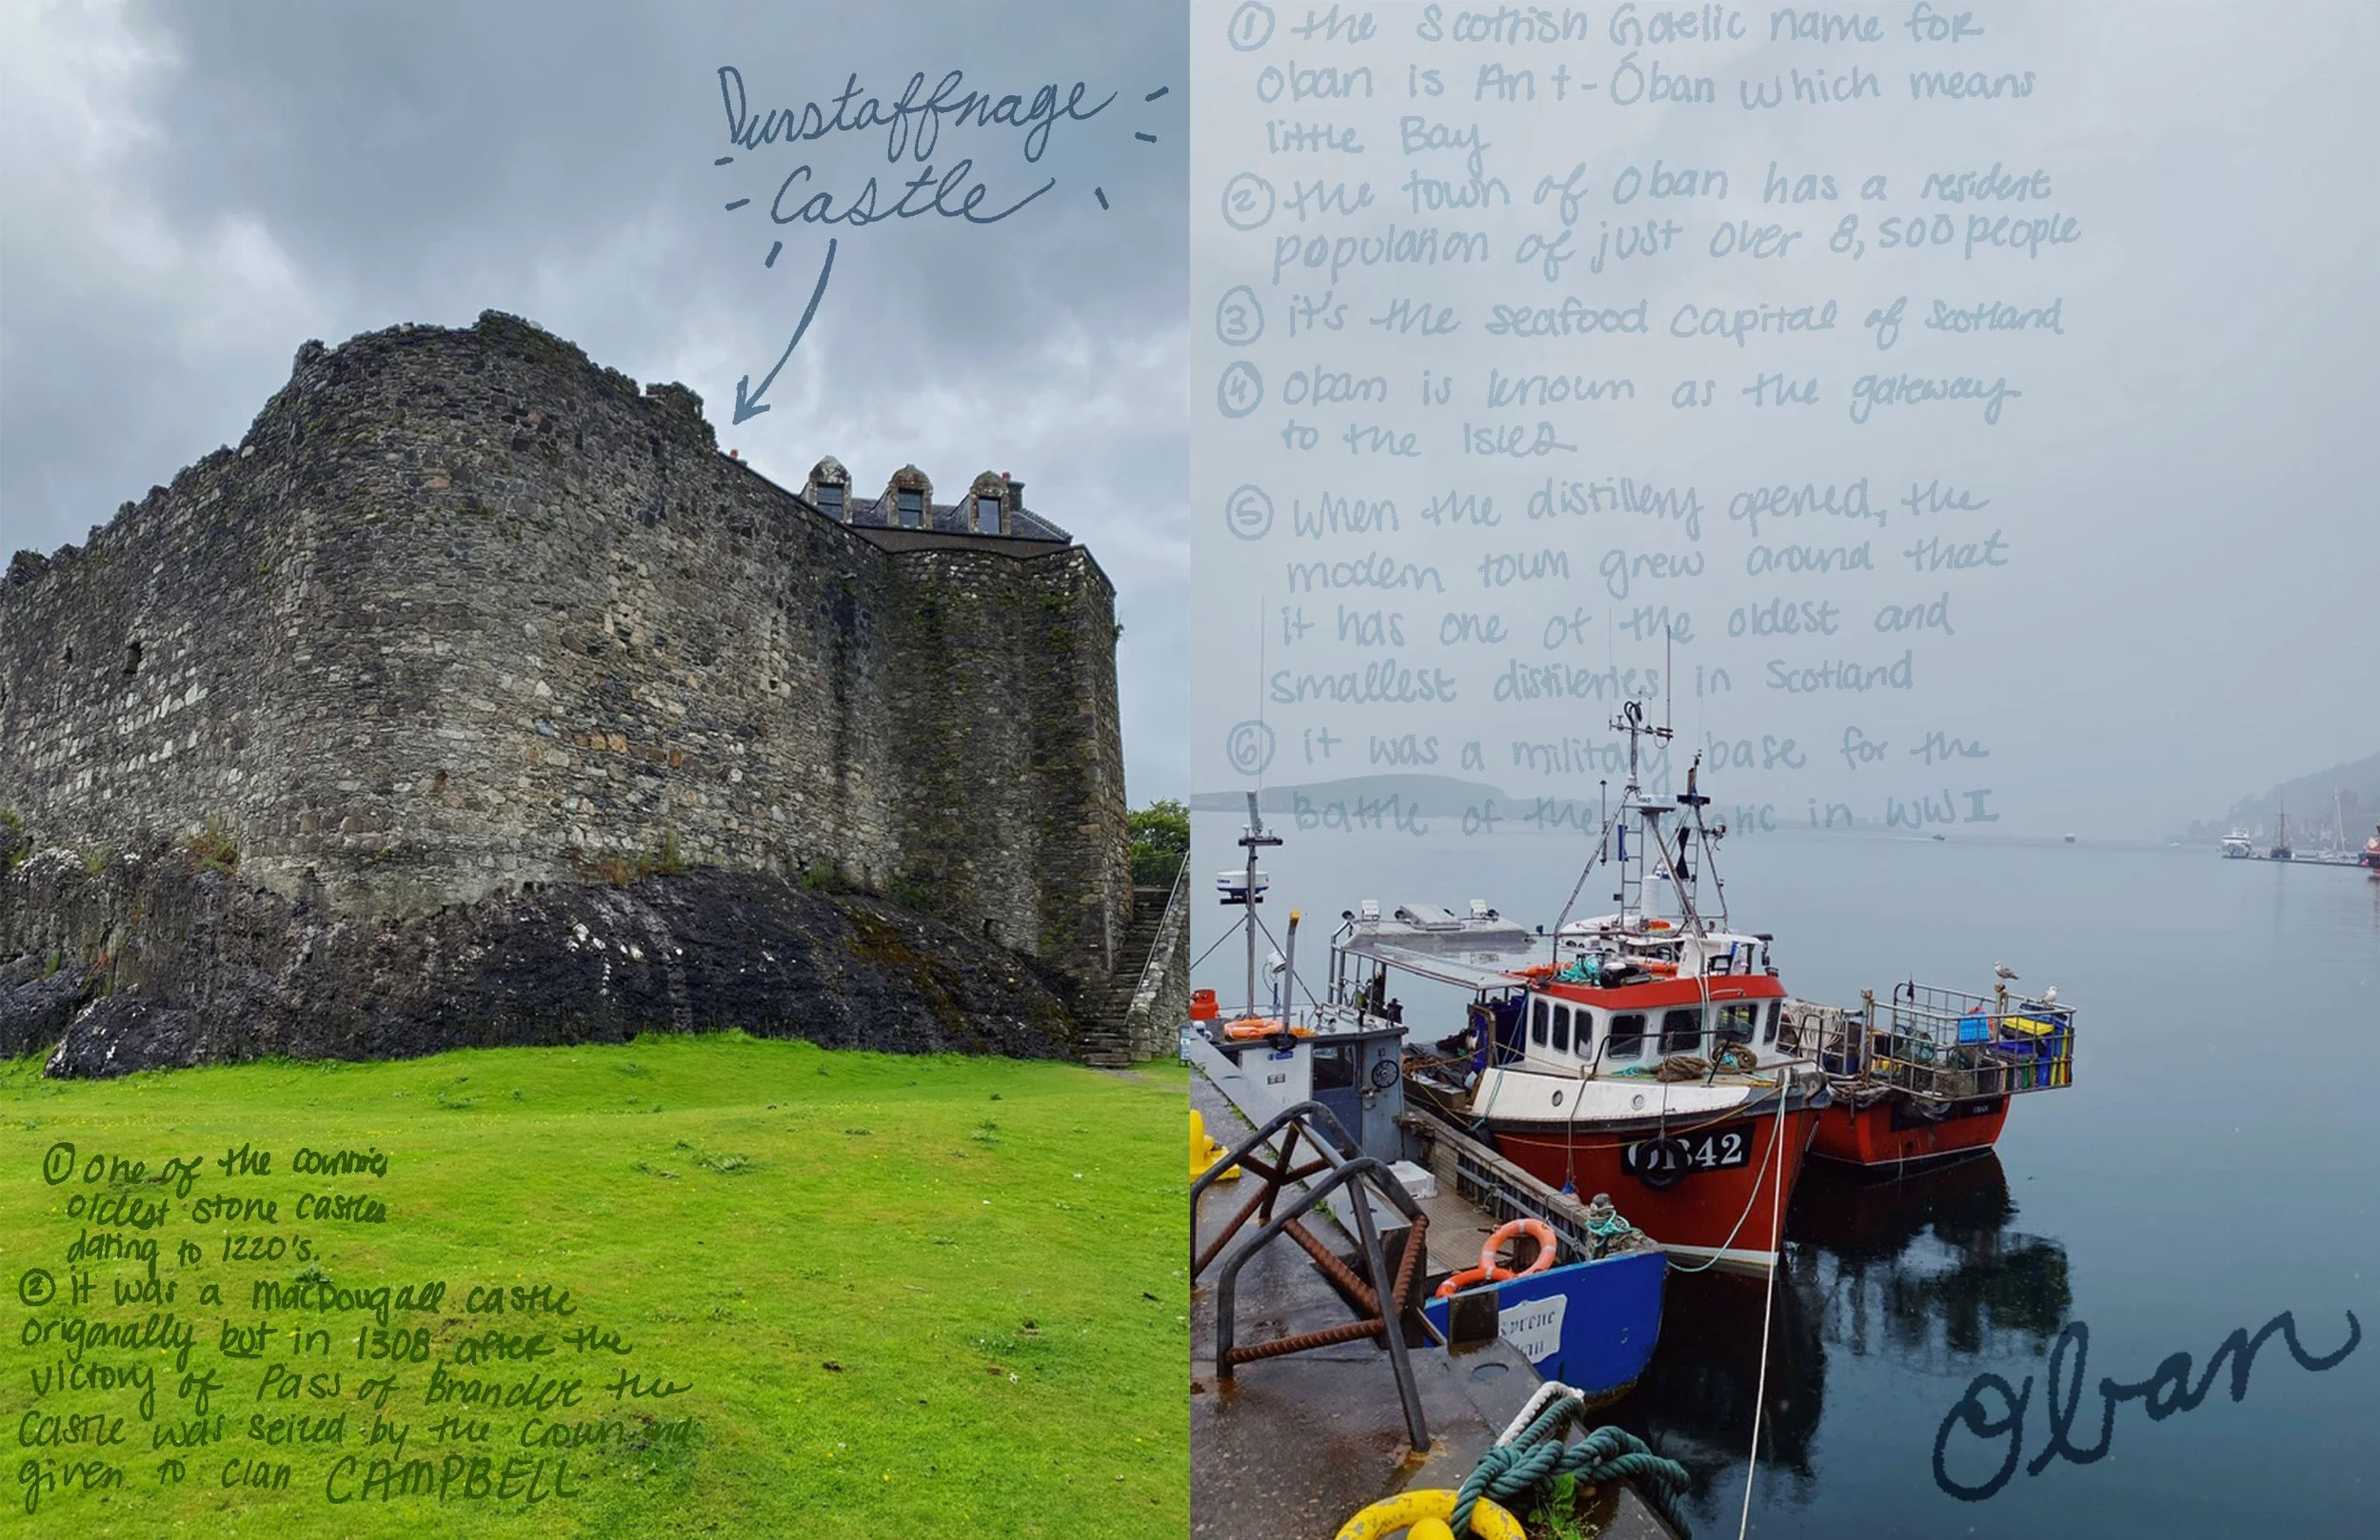 Dunstaffnage
Castle
① one of the countries
oldest stone castles
dating to 1220's.
② it was a MacDougall castle
origonally but in 1308, after the
victory of Pass of Brander the
castle was seized by the crown and
given to clan CAMPBELL
① the Scottish Gaelic name for
Oban is An t-Óban which means
little Bay
② the town of Oban has a resident
population of just over 8,500 people
③ it's the seafood capital of Scotland
④ Oban is known as the gateway
to the Isles
⑤ When the distillery opened, the
modern town grew around that
it has one of the oldest and
smallest distileries in Scotland
⑥ it was a military base for the
Battle of the in WWI
OB42
Oban